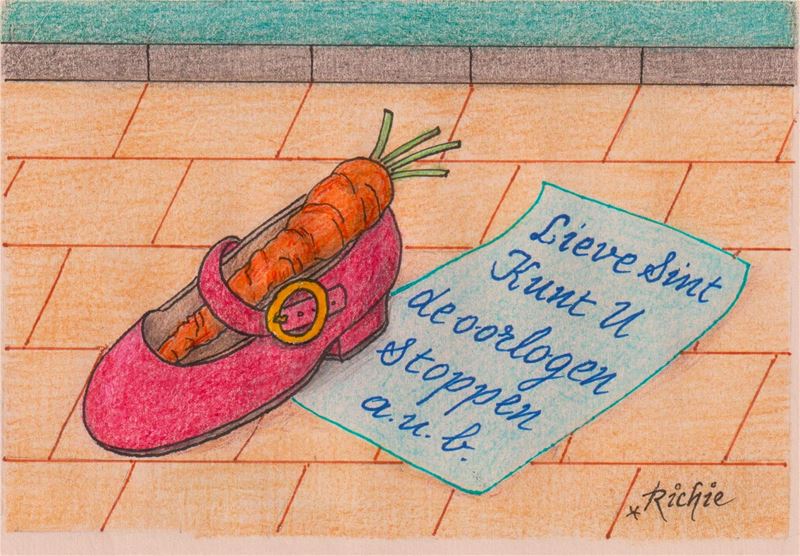 Lieve Sint
Kunt U
de oorlogen
Stoppen
a.u.b.
Richie